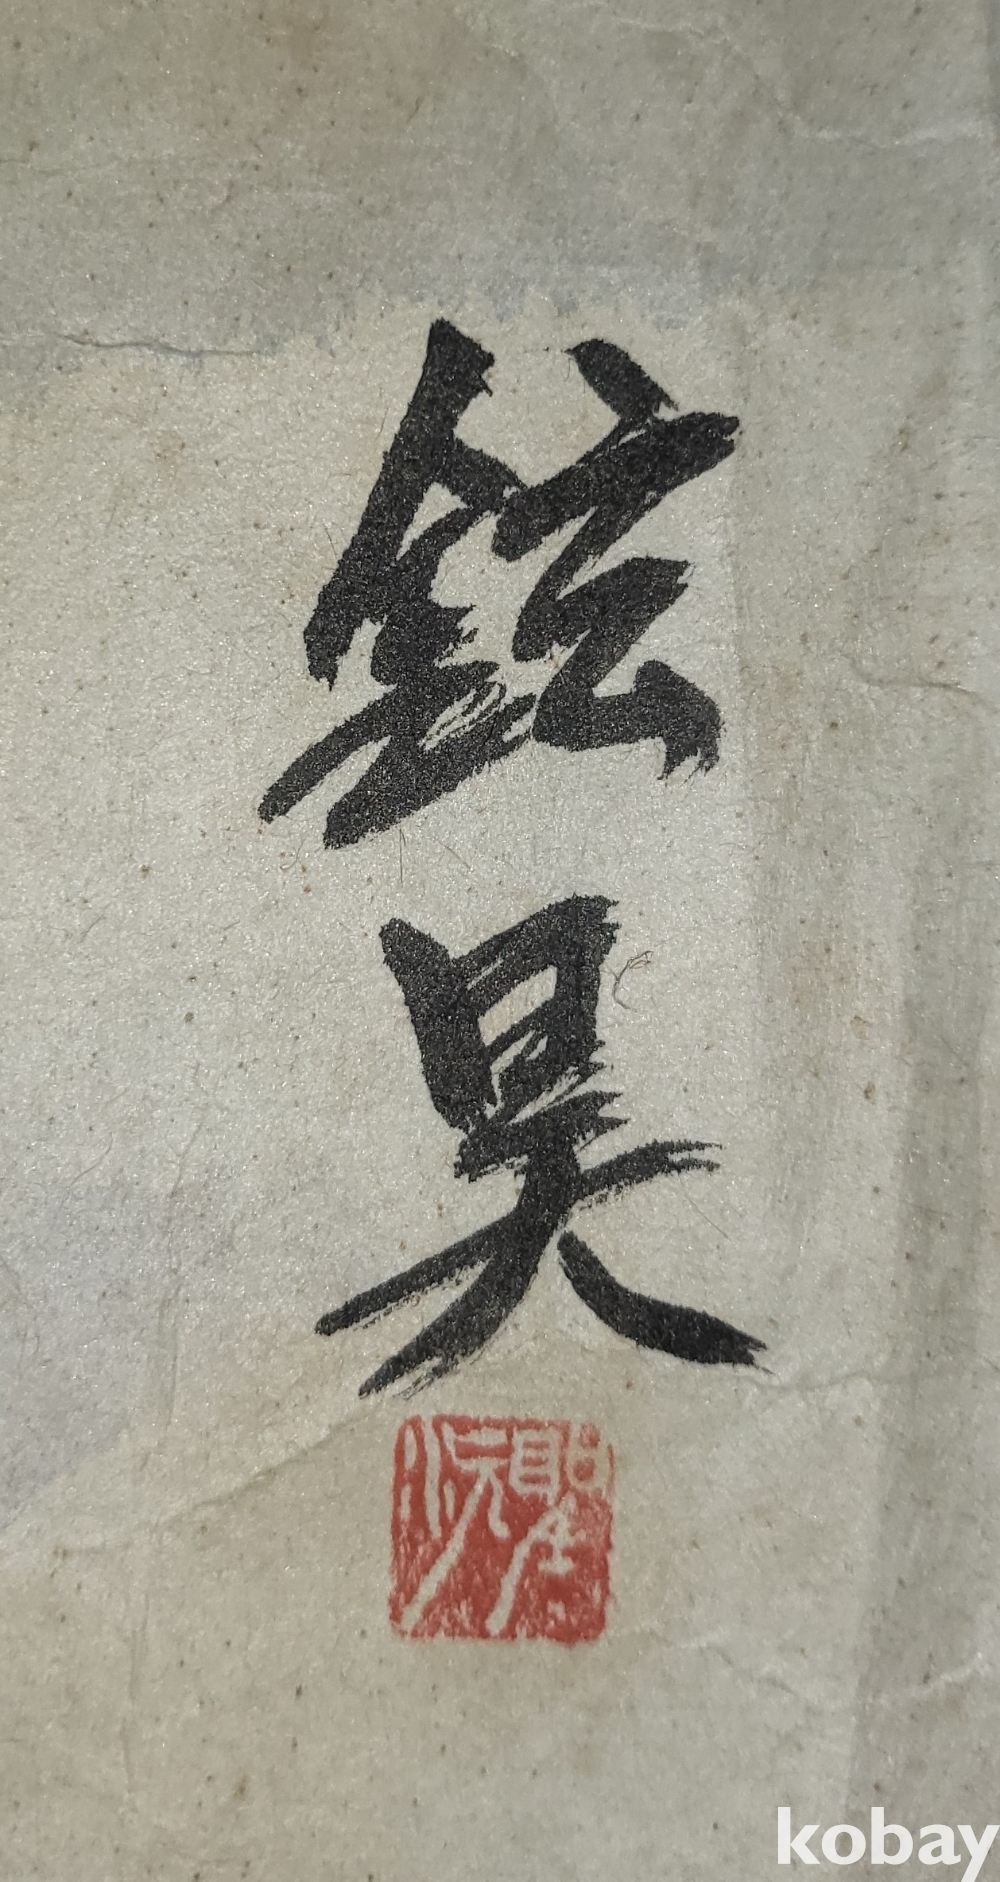 鉉
昊
kobay